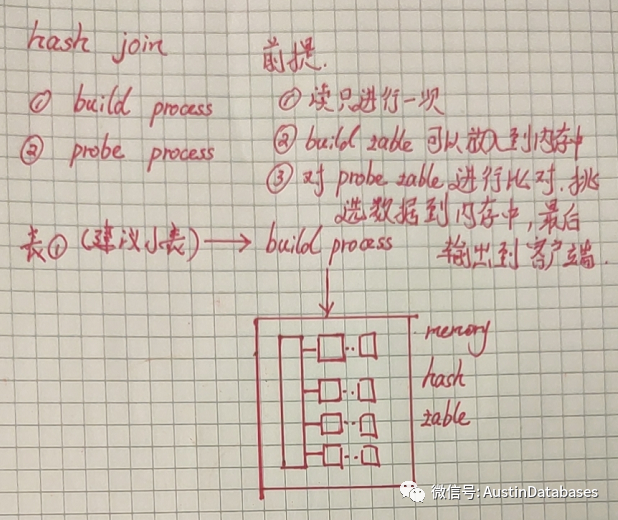 hash join
① build process
② probe process
前提.
① 读只进行一次
② build table 可以放入到内存中
③ 对 probe table 进行比对.挑
选数据到内存中,最后
输出到客户端.
表① (建议小表) → build process
memory
hash
table
微信号: AustinDatabases